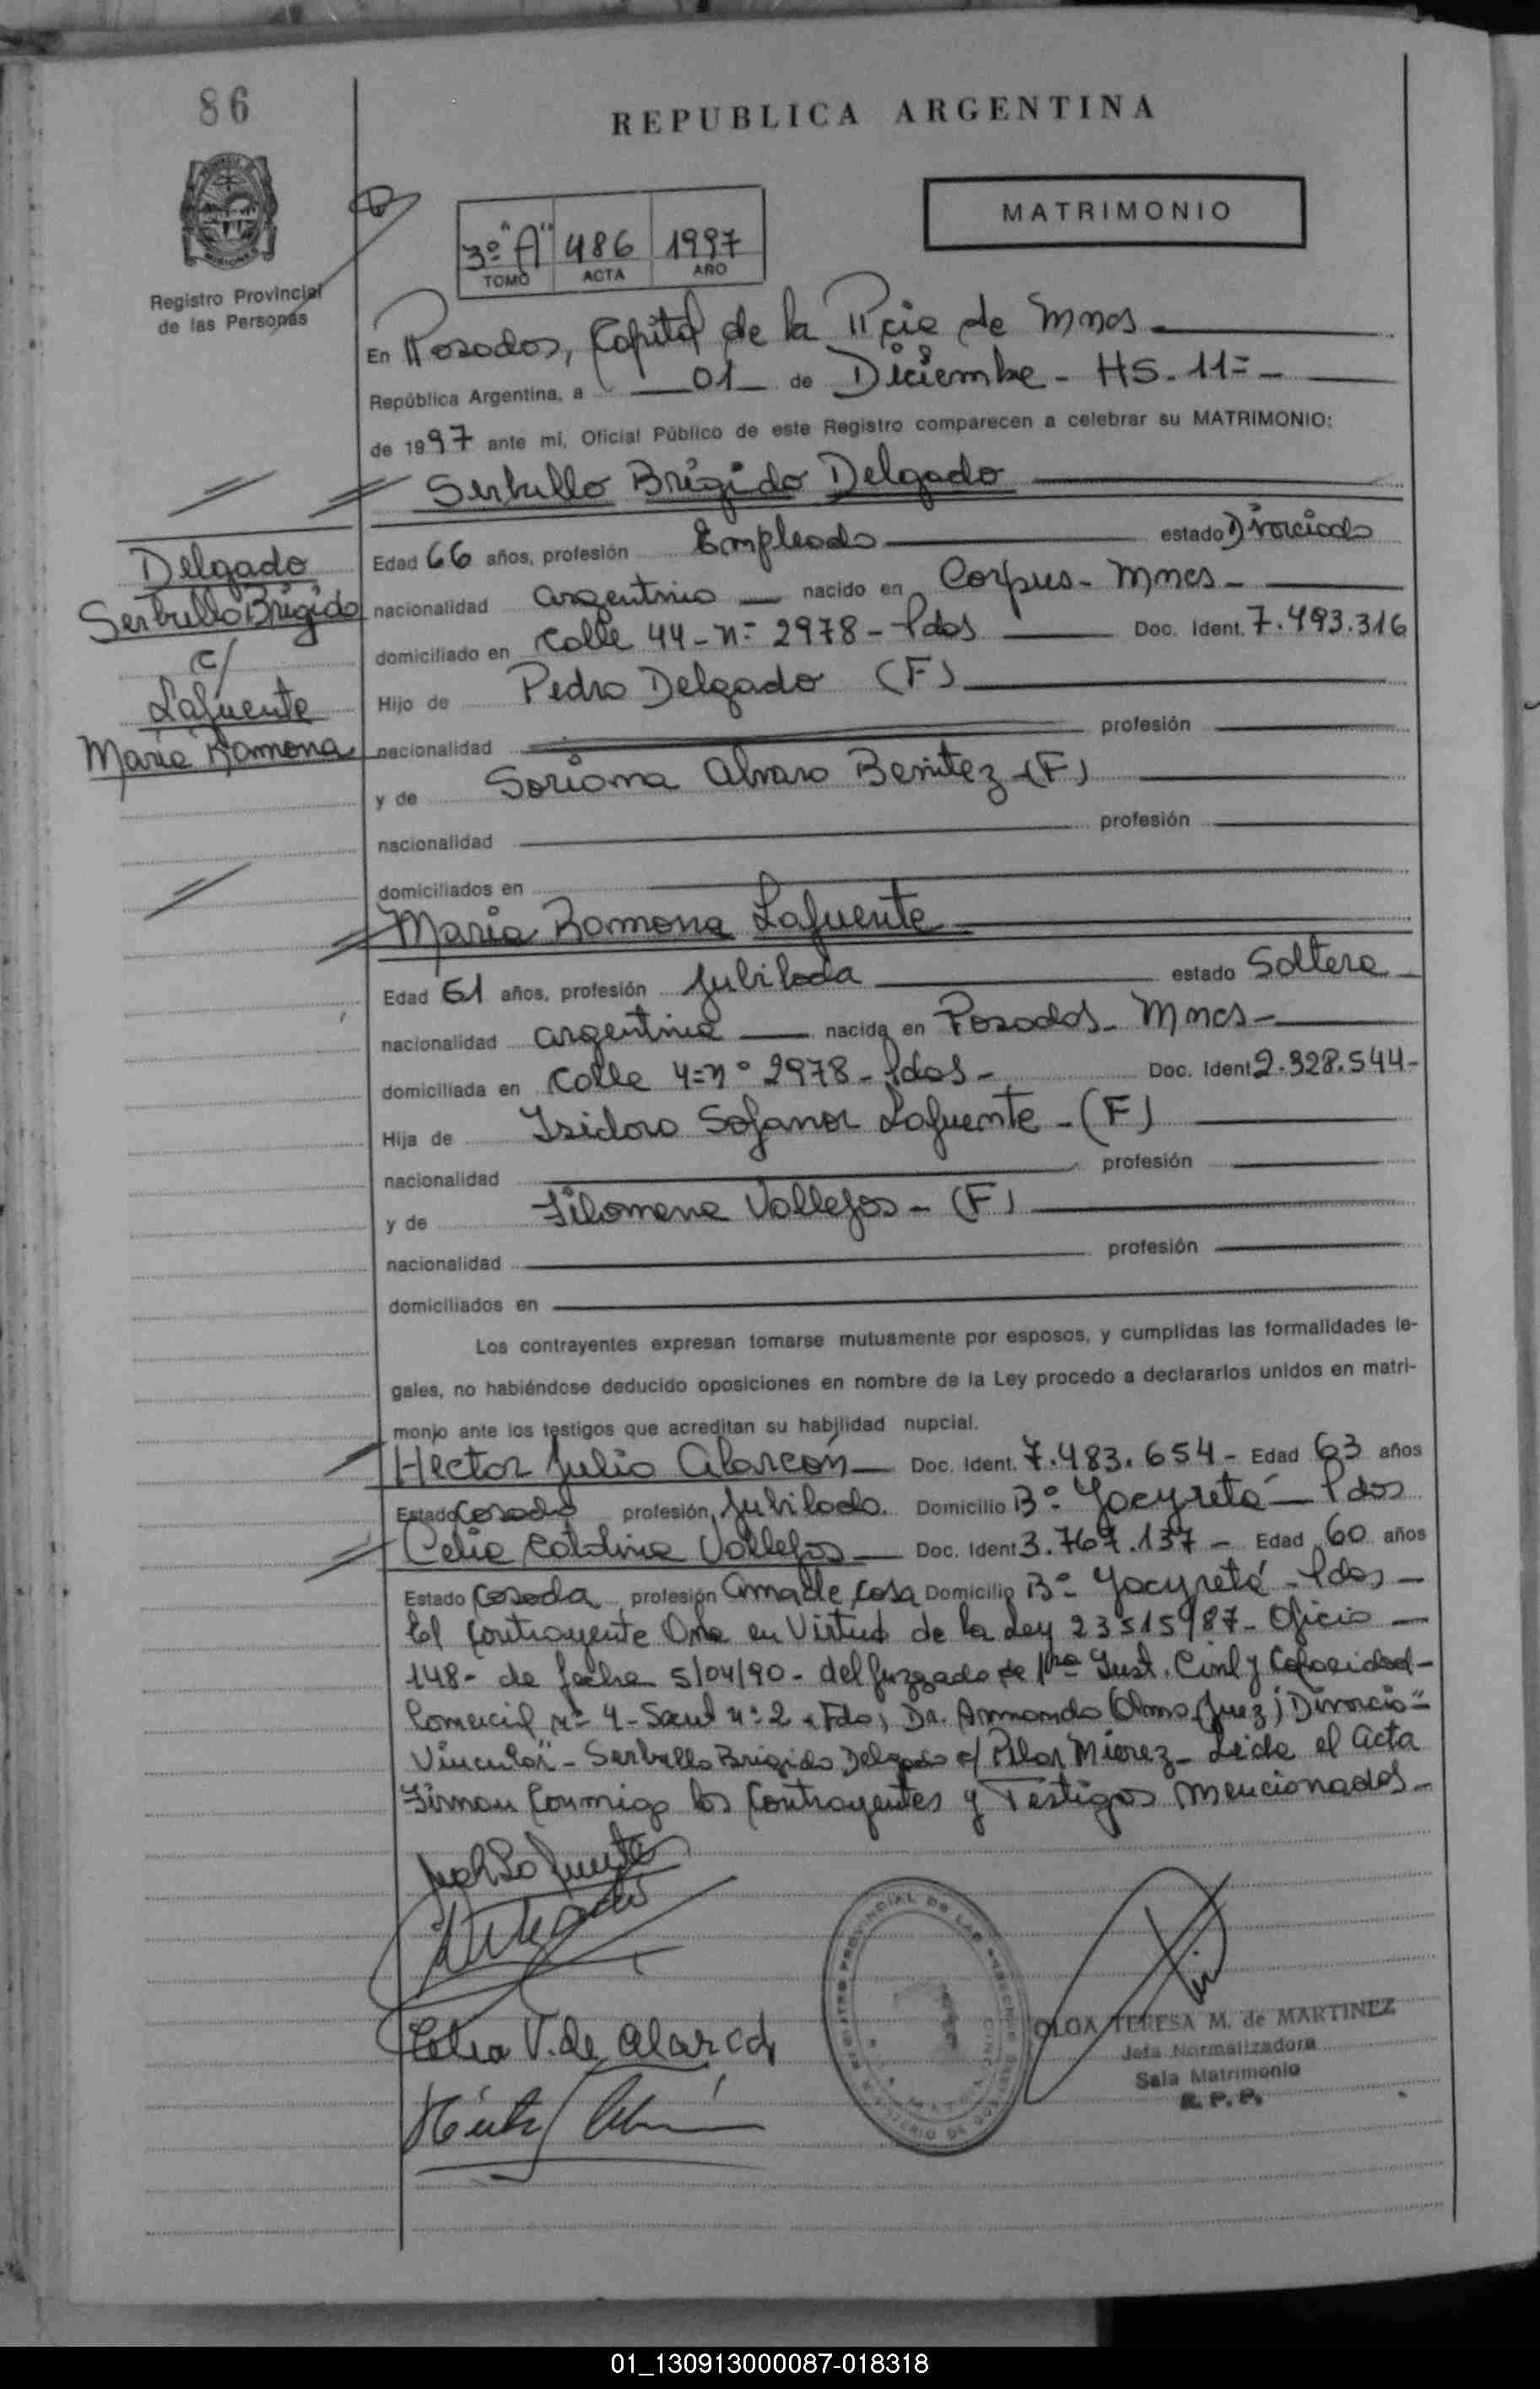 86
REPUBLICA ARGENTINA
MATRIMONIO
3º "A" 486 1997
TOMO ACTA AÑO
Registro Provincial
de las Personas
En Posadas, Capital de la Pcia de Mnes
República Argentina, a 01 de Diciembre - HS. 11=
de 1997 ante mi, Oficial Público de este Registro comparecen a celebrar su MATRIMONIO:
Serbullo Brigido Delgado
Delgado
Serbullo Brigido
c/
Lafuente
Maria Ramona
Edad 66 años, profesión Empleado estado Divorciado
nacionalidad argentino nacido en Corpus - Mnes -
domiciliado en Calle 44 - nº 2978 - Pdas Doc. Ident. 7.493.316
Hijo de Pedro Delgado (F)
nacionalidad profesión
y de Soriana Alvaro Benitez - (F)
nacionalidad profesión
domiciliados en
Maria Ramona Lafuente
Edad 61 años, profesión Jubilada estado Soltera
nacionalidad argentina nacida en Posadas - Mnes -
domiciliada en Calle 4= nº 2978 - Pdas - Doc. Ident 2.328.544-
Hija de Isidoro Sofanor Lafuente - (F)
nacionalidad profesión
y de Filomena Vallejos - (F)
nacionalidad profesión
domiciliados en
Los contrayentes expresan tomarse mutuamente por esposos, y cumplidas las formalidades le-
gales, no habiéndose deducido oposiciones en nombre de la Ley procedo a declararlos unidos en matri-
monio ante los testigos que acreditan su habilidad nupcial.
Hector Julio Alarcón Doc. Ident. 7.483.654 - Edad 63 años
Estado Casado profesión Jubilado. Domicilio Bº Yacyretá - Pdas
Celia Catalina Vallejos Doc. Ident 3.767.137 - Edad 60 años
Estado Casada profesión Ama de casa Domicilio Bº Yacyretá - Pdas -
El Contrayente en Virtud de la Ley 23515/87 - Oficio -
148 - de fecha 5/04/90 - del Juzgado de 1ra Inst. Civil y
Comercial nº 4 - nº 2 - Fdo; Dr. Armando Olmo (Juez) "Divorcio=
Vincular" - Serbullo Brigido Delgado c/ Pilar Mierez - Leida el Acta
Firman Conmigo los Contrayentes y Testigos Mencionados -
Delgado
Celia V. de Alarcón
OLGA TERESA M. de MARTINEZ
Jefa Normalizadora
Sala Matrimonio
R. P. P.
01_130913000087-018318